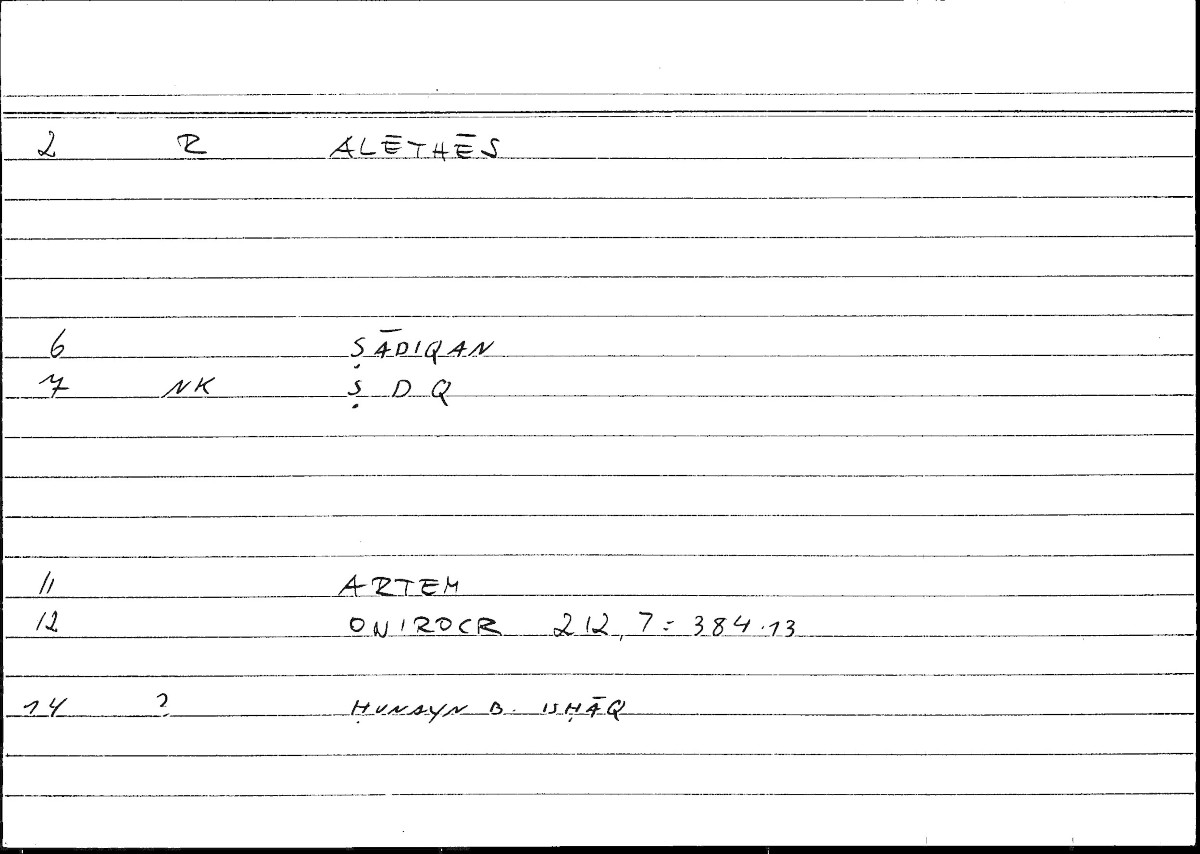 2 R ALĒTHĒS
6 ṢĀDIQAN
7 NK Ṣ D Q
11 ARTEM
12 ONIROCR 212,7=384.13
14 ? ḤUNAYN B. ISḤĀQ